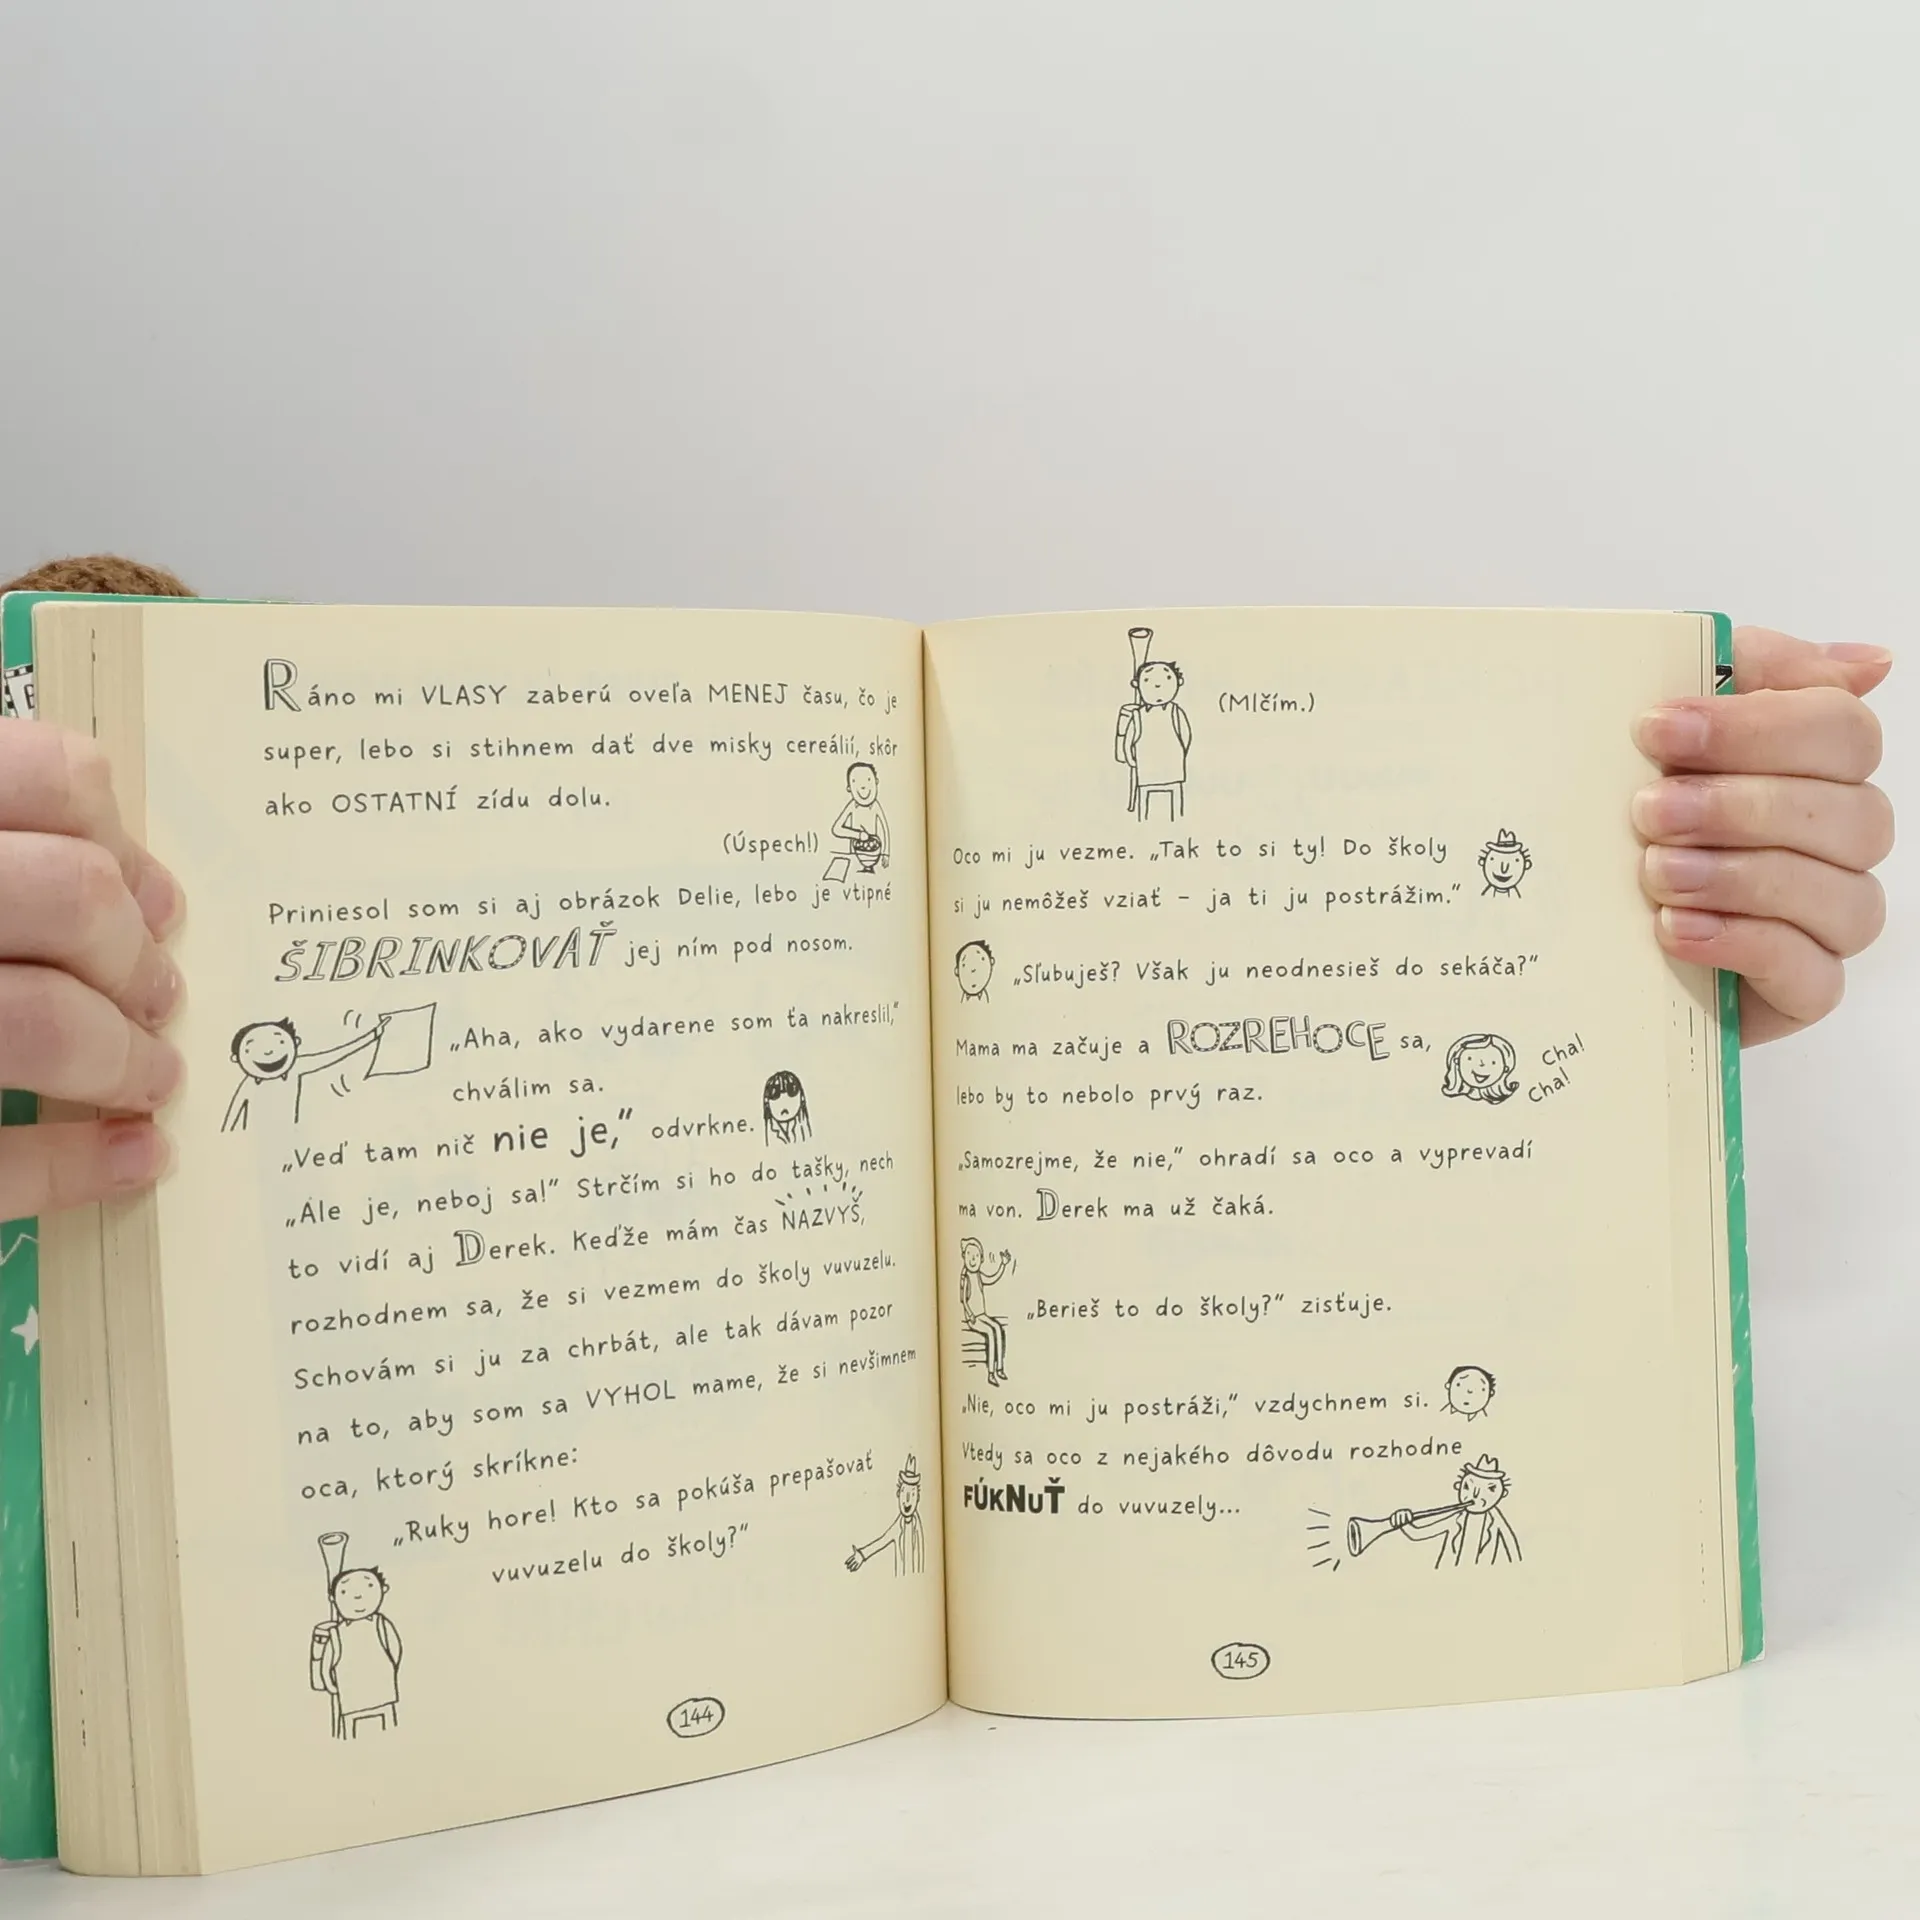 Ráno mi VLASY zaberú oveľa MENEJ času, čo je
super, lebo si stihnem dať dve misky cereálií, skôr
ako OSTATNÍ zídu dolu.
(Úspech!)
Priniesol som si aj obrázok Delie, lebo je vtipné
ŠIBRINKOVAŤ jej ním pod nosom.
„Aha, ako vydarene som ťa nakreslil,“
chválim sa.
„Veď tam nič nie je,“ odvrkne.
„Ale je, neboj sa!“ Strčím si ho do tašky, nech
to vidí aj Derek. Keďže mám čas NAZVYŠ,
rozhodnem sa, že si vezmem do školy vuvuzelu.
Schovám si ju za chrbát, ale tak dávam pozor
na to, aby som sa VYHOL mame, že si nevšimnem
oca, ktorý skríkne:
„Ruky hore! Kto sa pokúša prepašovať
vuvuzelu do školy?“
144
(Mlčím.)
Oco mi ju vezme. „Tak to si ty! Do školy
si ju nemôžeš vziať – ja ti ju postrážim.“
„Sľubuješ? Však ju neodnesieš do sekáča?“
Mama ma začuje a ROZREHOCE sa,
Cha!
Cha!
lebo by to nebolo prvý raz.
„Samozrejme, že nie,“ ohradí sa oco a vyprevadí
ma von. Derek ma už čaká.
„Berieš to do školy?“ zisťuje.
„Nie, oco mi ju postráži,“ vzdychnem si.
Vtedy sa oco z nejakého dôvodu rozhodne
FÚKNUŤ do vuvuzely...
145